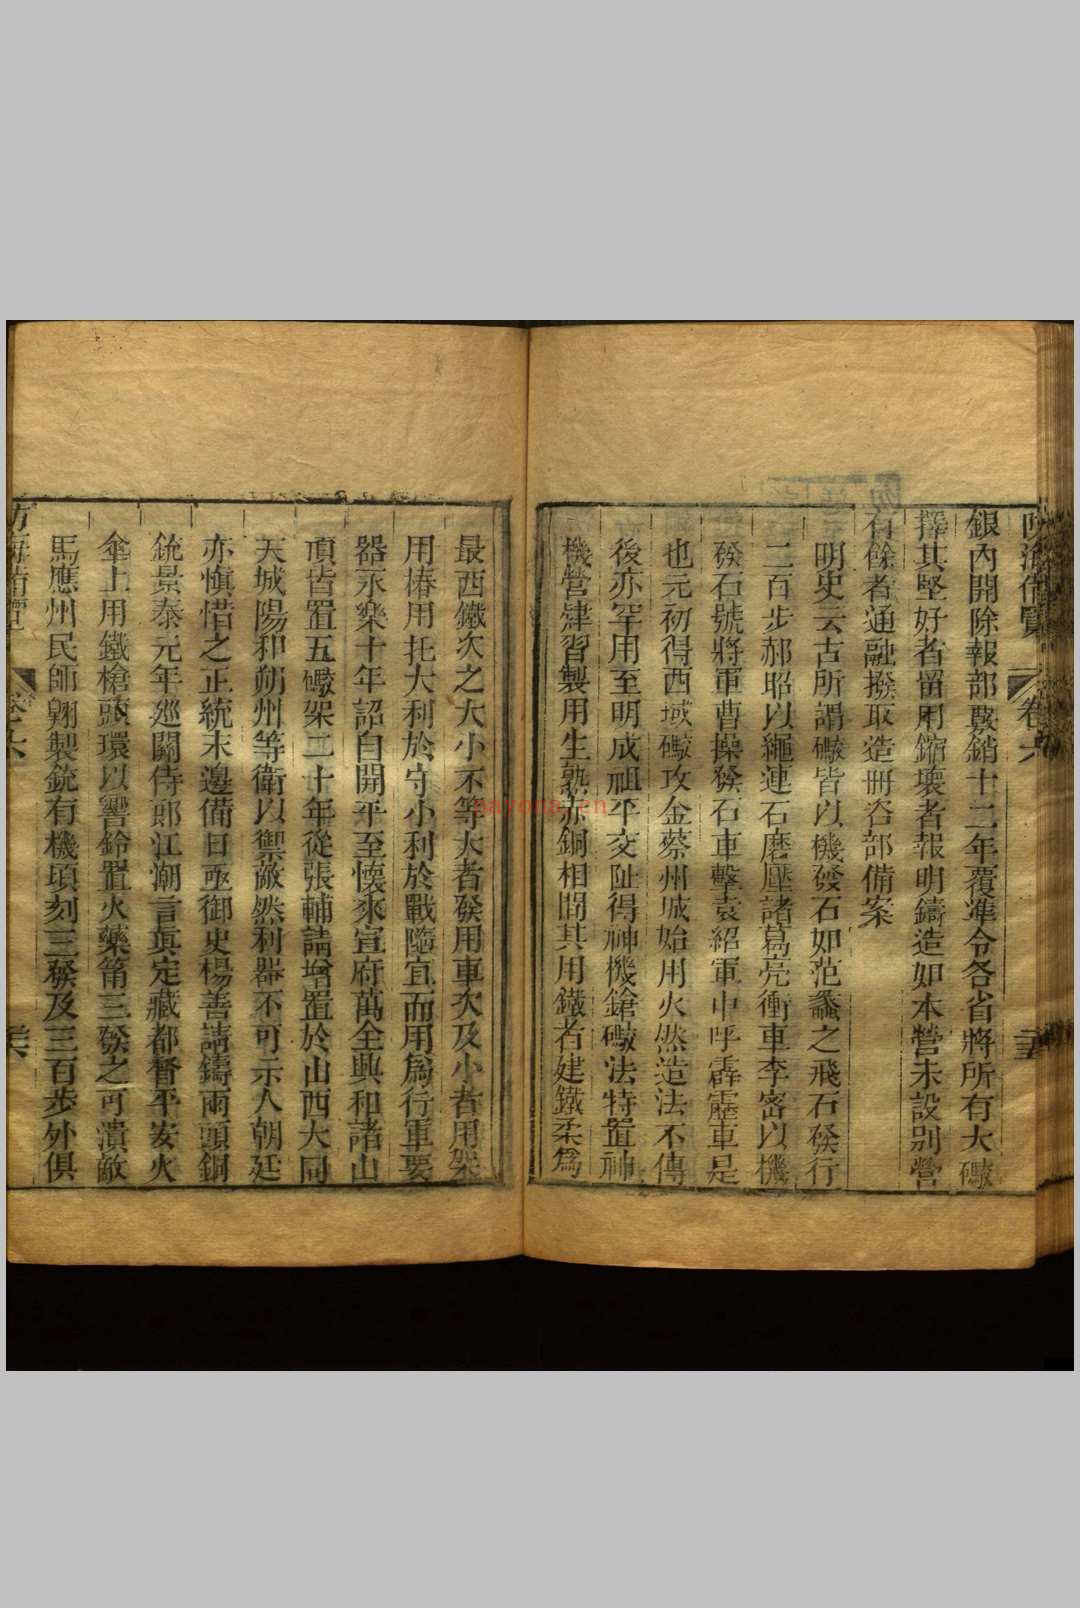 防海備覽
卷六
三五
銀內開除報部覈銷十二年覆準令各省將所有大礮
擇其堅好者留用鏽壞者報明鑄造如本營未設別營
有餘者通融撥取造冊咨部備案
明史云古所謂礮皆以機發石如范蠡之飛石發行
二百步郝昭以繩連石磨壓諸葛亮衝車李密以機
發石號將軍曹操發石車擊袁紹軍中呼霹靂車是
也元初得西域礮攻金蔡州城始用火然造法不傳
後亦罕用至明成祖平交阯得神機鎗礮法特置神
機營肄習製用生熟赤銅相間其用鐵者建鐵柔爲
最西鐵次之大小不等大者發用車次及小者用架
用樁用托大利於守小利於戰隨宜而用爲行軍要
器永樂十年詔自開平至懷來宣府萬全興和諸山
頂皆置五礮架二十年從張輔請增置於山西大同
天城陽和朔州等衛以禦敵然利器不可示人朝廷
亦慎惜之正統末邊備日亟御史楊善請鑄兩頭銅
銃景泰元年巡關侍郎江潮言眞定藏都督平安火
傘上用鐵槍頭環以響鈴置火藥筩三發之可潰敵
馬應州民師翺製銃有機頃刻三發及三百步外俱
防海備覽
卷六
nayona.cn